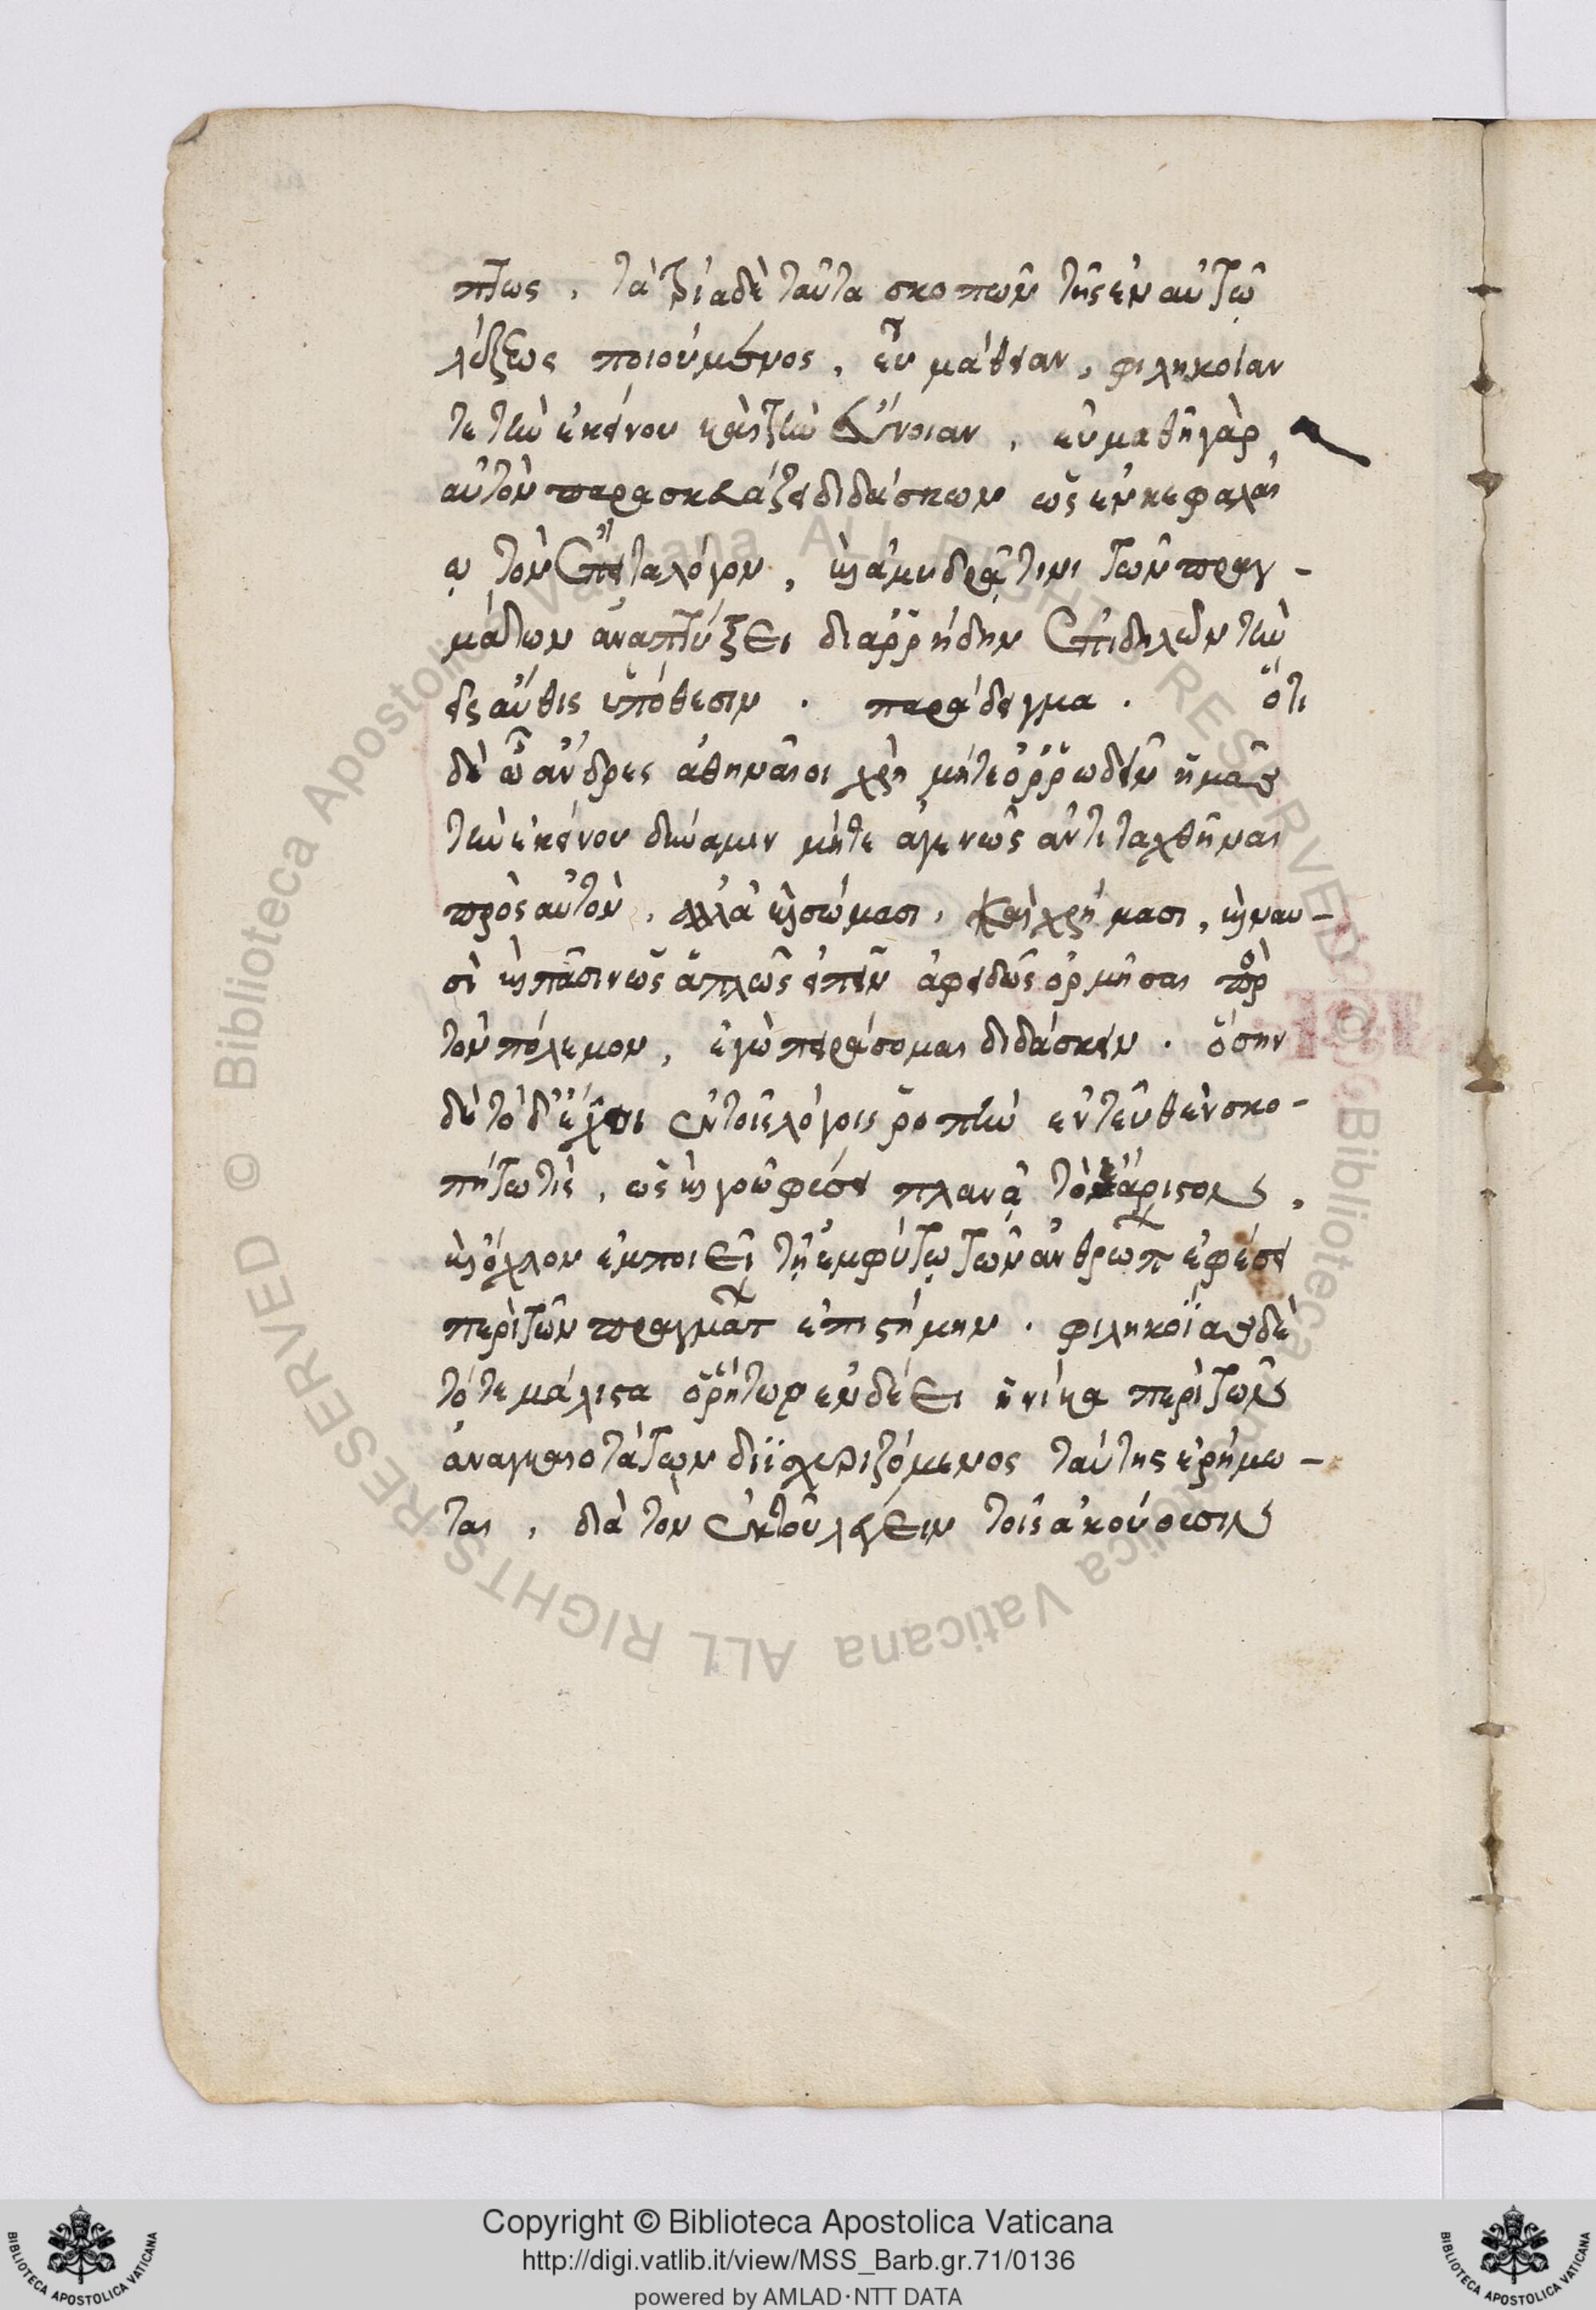 πτως, τὰ τρία δὲ ταῦτα σκοπῶν τῆς ἐν αὐτῷ
λέξεως ποιούμενος, εὐμάθειαν, φιληκοΐαν
τε τὴν ἐκείνου καὶ τὴν εὔνοιαν, εὐμαθῆ γὰρ
αὐτὸν παρασκευάζει διδάσκων ὡς ἐν κεφαλαί
ῳ τὸν ἔπειτα λόγον, κἀμυδρᾷ τινι τῶν πραγ-
μάτων ἀναπτύξει διαῤῥήδην ἐπιδηλῶν τὴν
εἰς αὖθις ὑπόθεσιν. παράδειγμα. ὅτι
δὲ ὦ ἄνδρες ἀθηναῖοι χρὴ μήτε ὀῤῥωδεῖν ἡμᾶς
τὴν ἐκείνου δύναμιν μήτε ἀγενῶς ἀντιταχθῆναι
πρὸς αὐτὸν, ἀλλὰ καὶ σώμασι, καὶ χρήμασι, καὶ ναυ-
σὶ καὶ πᾶσιν ὡς ἁπλῶς εἰπεῖν ἀφειδῶς ὁρμῆσαι πρὸ
τὸν πόλεμον, ἐγὼ πειράσομαι διδάσκειν. ὅσην
δὲ τόδ' ἔχει ἐν τοῖς λόγοις ῥοπὴν ἐντεῦθεν σκο-
πήτω τὶς, ὡς καὶ γοῦ φέσει πλανᾷ τὸν ἄριστον,
καὶ ὄχλον ἐμποιεῖ τῇ ἐμφύτῳ τῶν ἀνθρώπ ἐφέσει
περὶ τῶν πραγμάτ ἐπιστήμην. φιληκοΐας δὲ
τότε μάλιστα ὁ ῥήτωρ ἐνδέει ἡνίκα περὶ τῶν
ἀναγκαιοτάτων διϊσχυριζόμενος ταύτης ἐρήμω-
ται, διὰ τὸν ἐκ τοῦ λέγειν τοῖς ἀκούουσιν
Copyright © Biblioteca Apostolica Vaticana
http://digi.vatlib.it/view/MSS_Barb.gr.71/0136
powered by AMLAD·NTT DATA